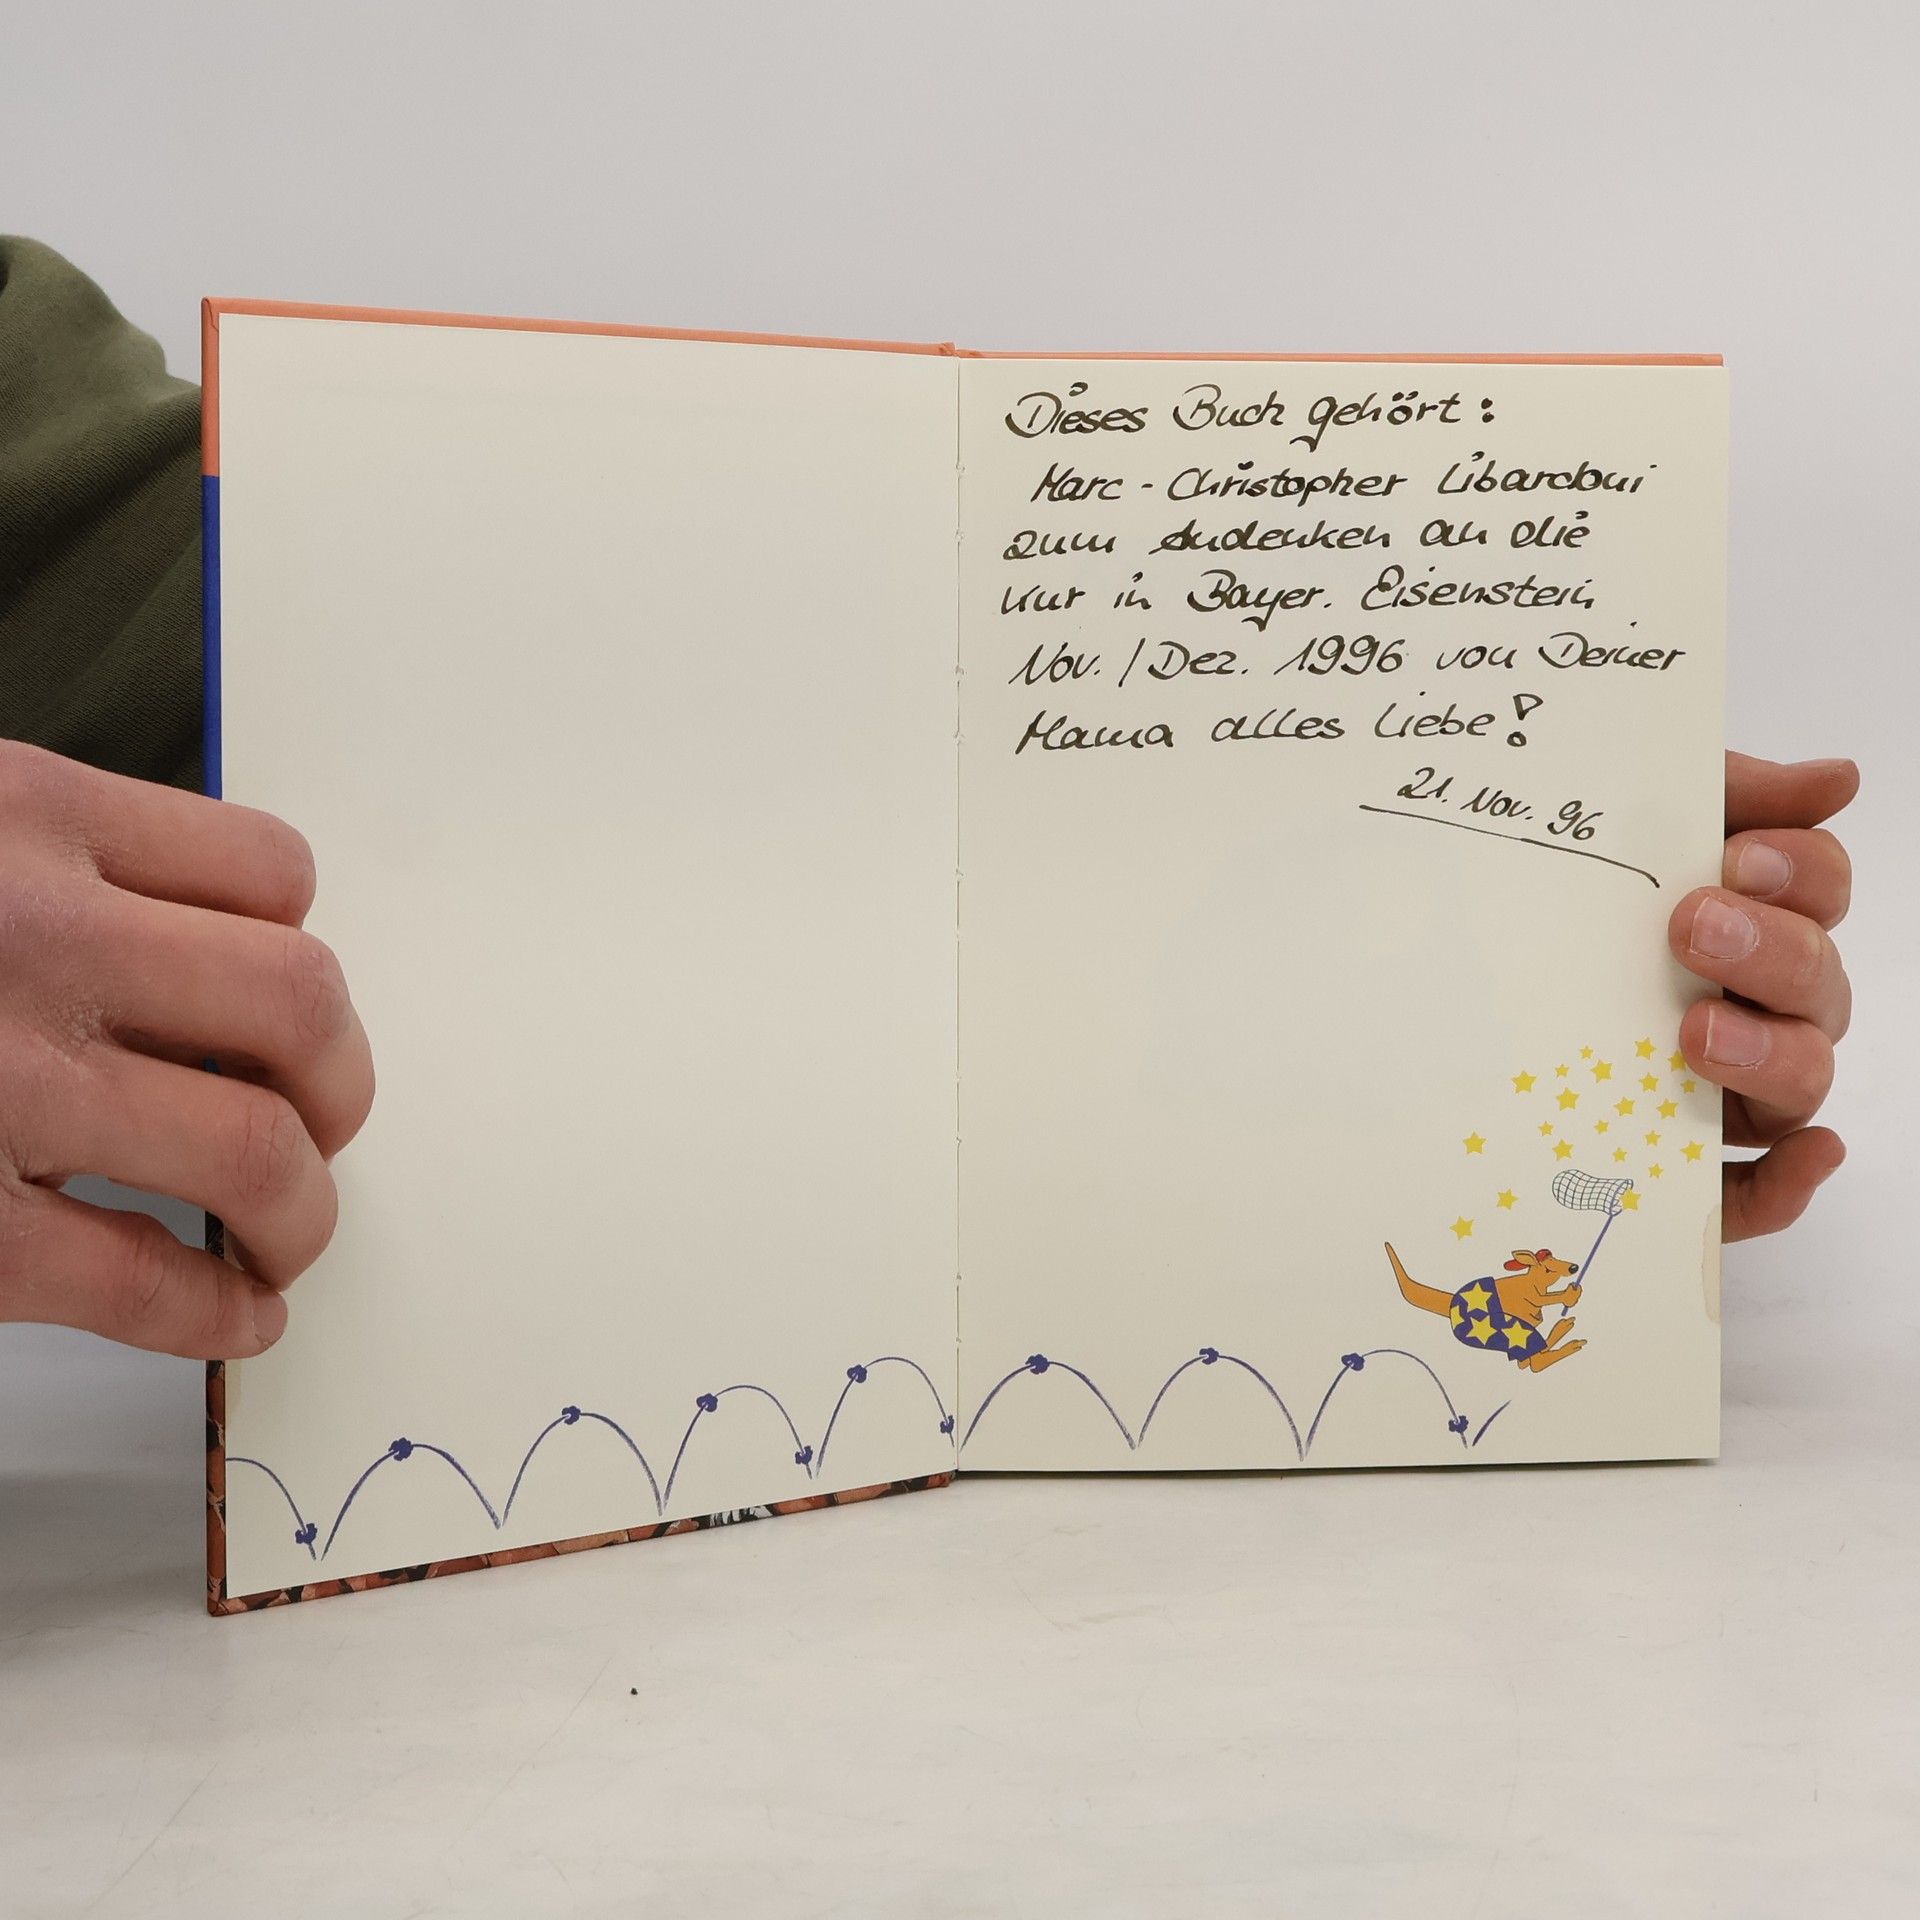 Dieses Buch gehört:
Marc-Christopher Libardoni
zum Andenken an die
Kur in Bayer. Eisenstein
Nov./Dez. 1996 von Deiner
Mama alles Liebe!
21. Nov. 96